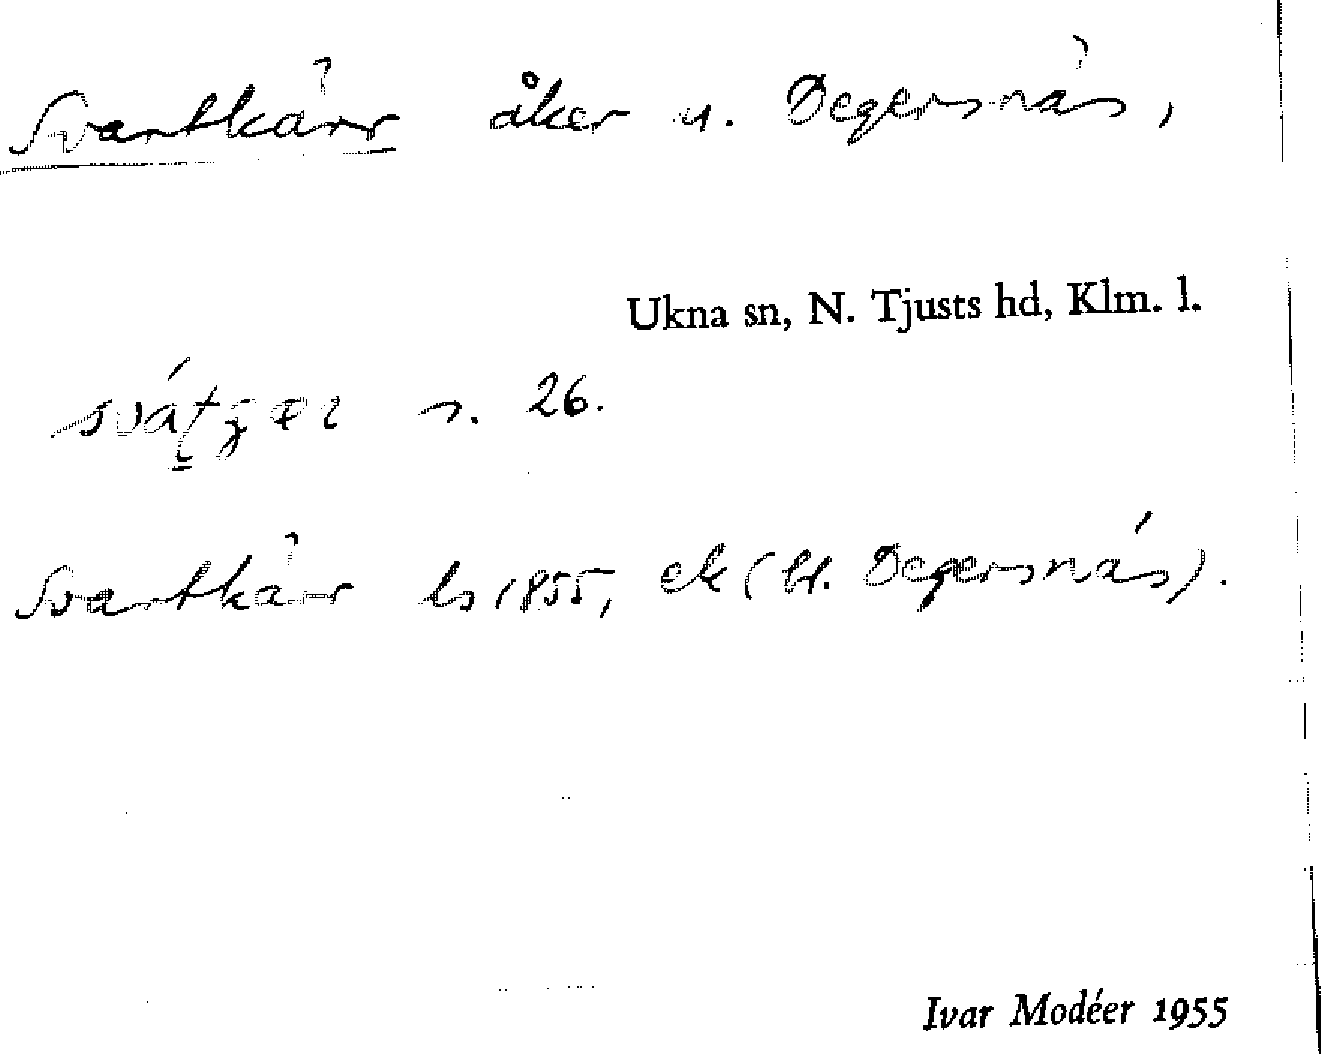 Svartkärr åker u. Degersnäs,
Ukna sn, N. Tjusts hd, Klm. l.
n. 26.
Svartkärr ls 1855, ek (St. Degersnäs).
Ivar Modéer 1955